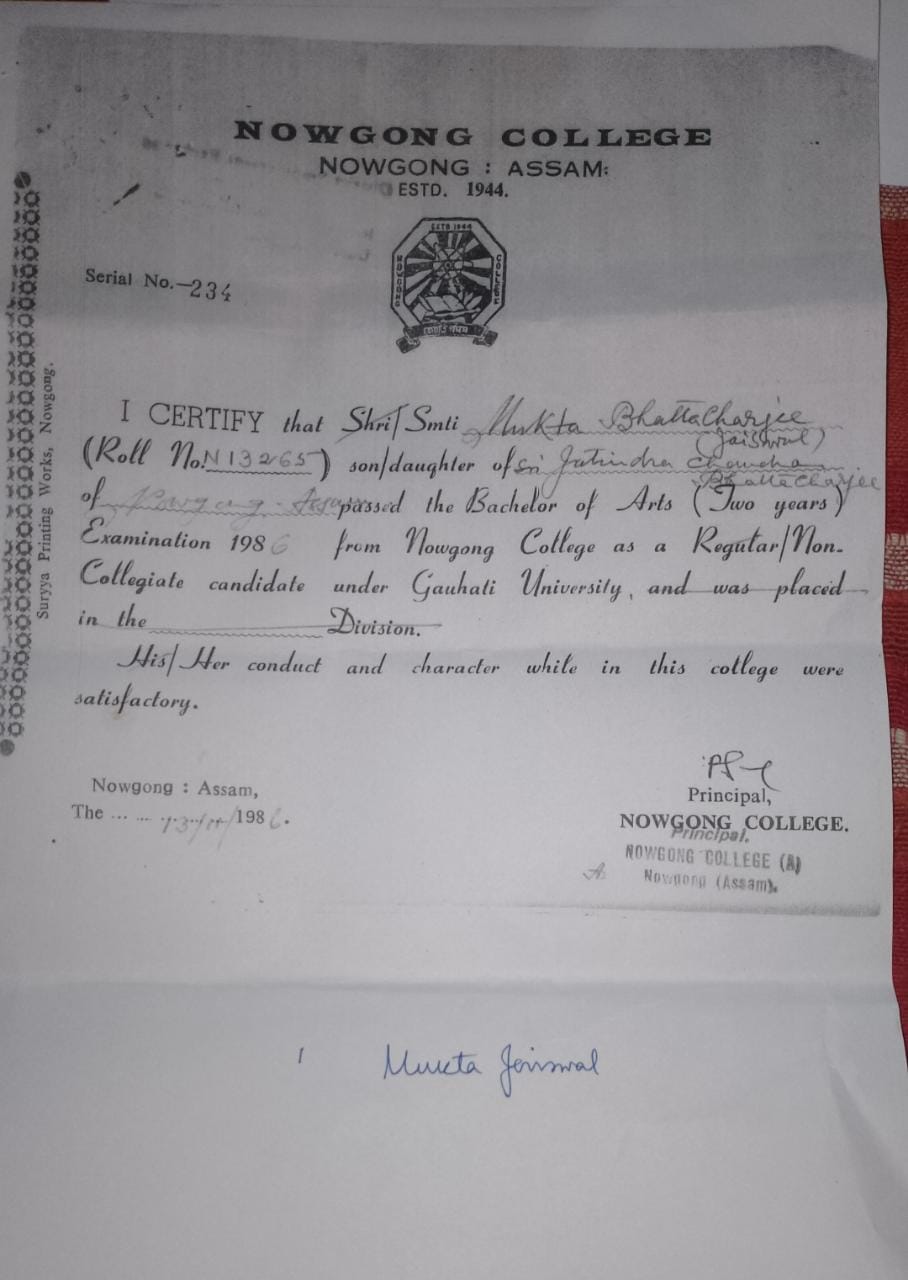 NOWGONG COLLEGE
NOWGONG : ASSAM:
ESTD. 1944.
ESTD 1944
NOWGONG
COLLEGE
Serial No.-234
I CERTIFY that Shri/Smti Mukta Bhattacharjee
(Jaiswal)
(Roll No. N13265) son/daughter of Sri Jatindra Chandra
Bhattacharjee
of Nowgong-Assam passed the Bachelor of Arts (Two years)
Examination 1986 from Nowgong College as a Regular/Non-
Collegiate candidate under Gauhati University, and was placed
in the Division.
His/Her conduct and character while in this college were
satisfactory.
Nowgong : Assam,
The ... ... 13/11/1986.
Principal,
NOWGONG COLLEGE.
Principal.
NOWGONG COLLEGE (A)
Nowgong (Assam).
Suryya Printing Works, Nowgong.
Mukta Jaiswal